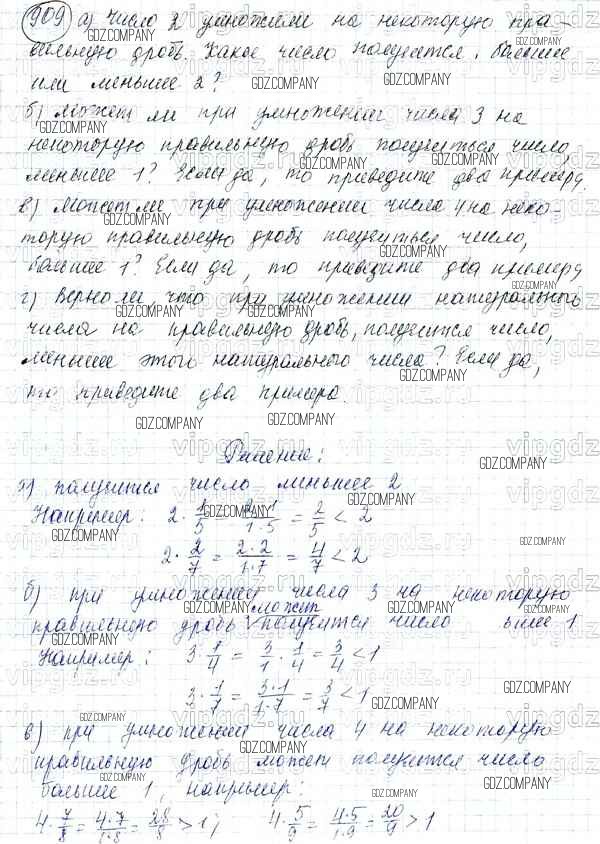 909 а) Число 2 умножили на некоторую пра-
вильную дробь. Какое число получится, большее
или меньшее 2?
б) Может ли при умножении числа 3 на
некоторую правильную дробь получиться число,
меньшее 1? Если да, то приведите два примера.
в) Может ли при умножении числа 4 на неко-
торую правильную дробь получиться число,
большее 1? Если да, то приведите два примера
г) Верно ли, что при умножении натурального
числа на правильную дробь, получится число,
меньшее этого натурального числа? Если да,
то приведите два примера.
Решение:
а) получится число меньшее 2
Например: 2 · 1/5 = 2·1/1·5 = 2/5 < 2
2 · 2/7 = 2·2/1·7 = 4/7 < 2
б) при умножении числа 3 на некоторую
может
правильную дробь получится число 1
Например: 3 · 1/4 = 3/1 · 1/4 = 3/4 < 1
3 · 1/7 = 3·1/1·7 = 3/7 < 1
в) при умножении числа 4 на некоторую
правильную дробь может получится число
большее 1, например:
4 · 7/8 = 4·7/1·8 = 28/8 > 1; 4 · 5/9 = 4·5/1·9 = 20/9 > 1
GDZ.COMPANY
vipgdz.ru